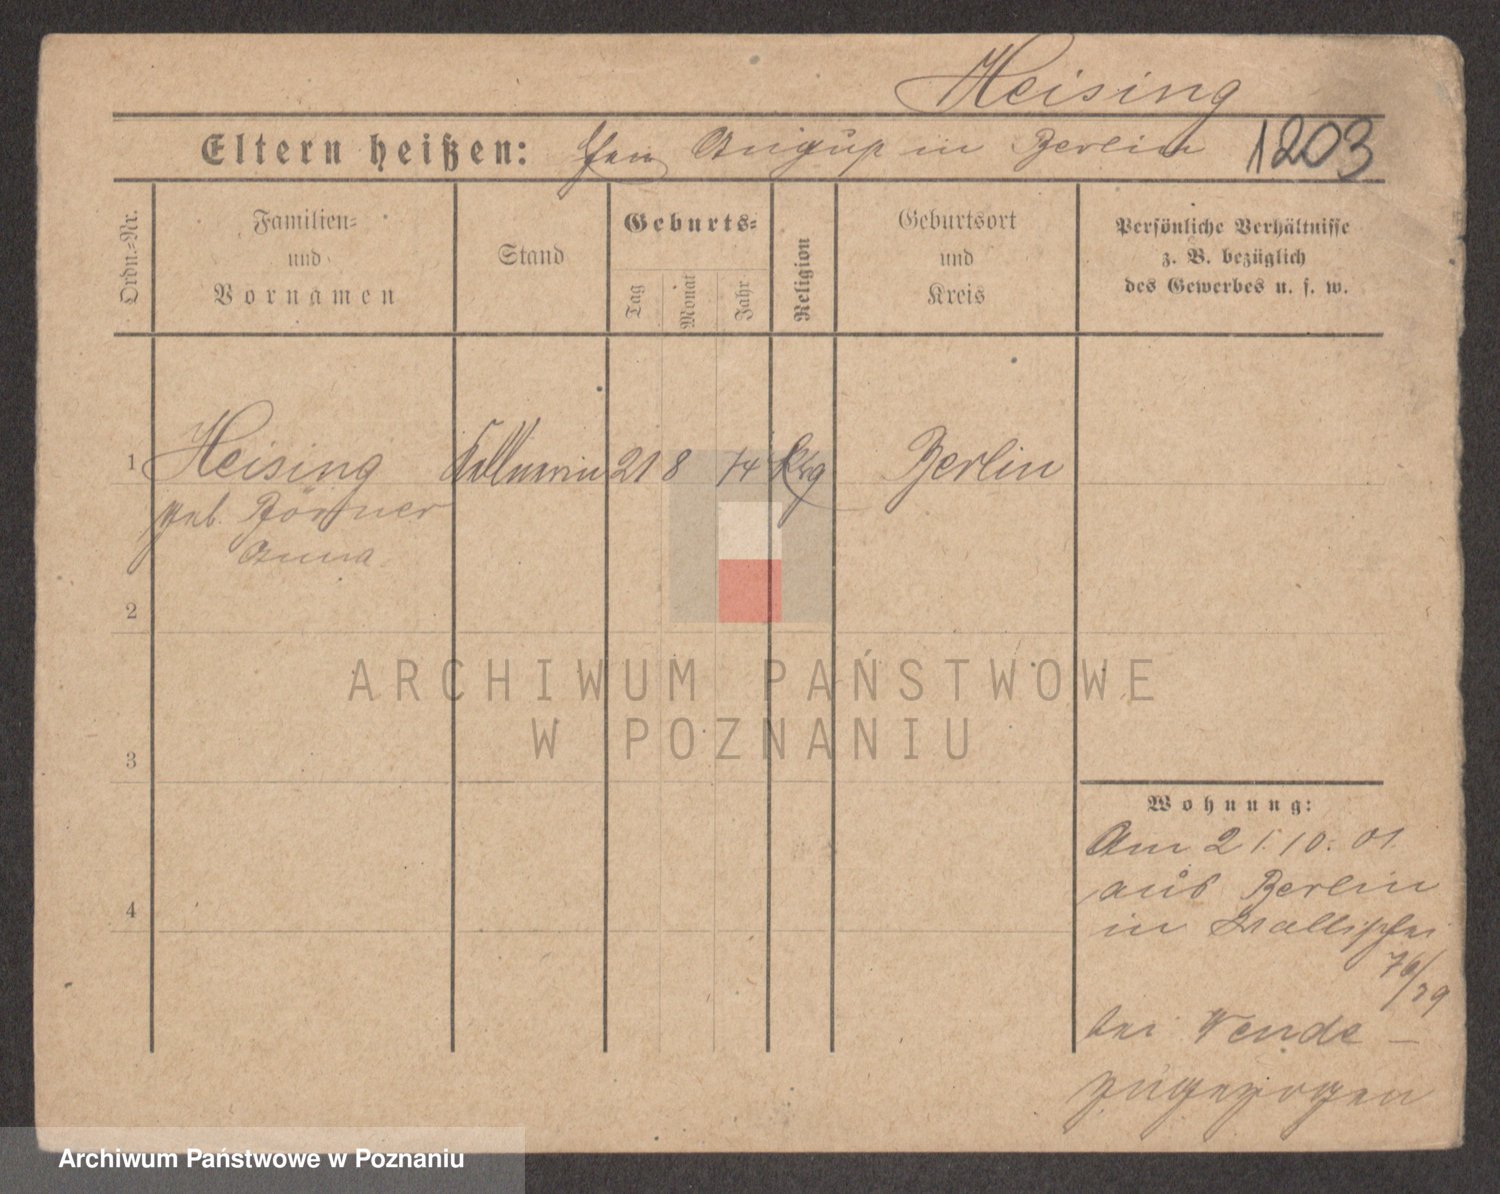 Heising
Eltern heißen: in Berlin 1203
Ordn.=Nr.
Familien=
und
Vornamen
Stand
Geburts=
Tag
Monat
Jahr
Religion
Geburtsort
und
Kreis
Persönliche Verhältnisse
z. B. bezüglich
des Gewerbes u. s. w.
1 Heising Kellnerin 21 8 74 Berlin
geb. Börner
Anna
2
3
4
Wohnung:
Am 21.10.01.
aus Berlin
in Wallischei
76/79
bei Wende
zugezogen
ARCHIWUM PAŃSTWOWE
W POZNANIU
Archiwum Państwowe w Poznaniu